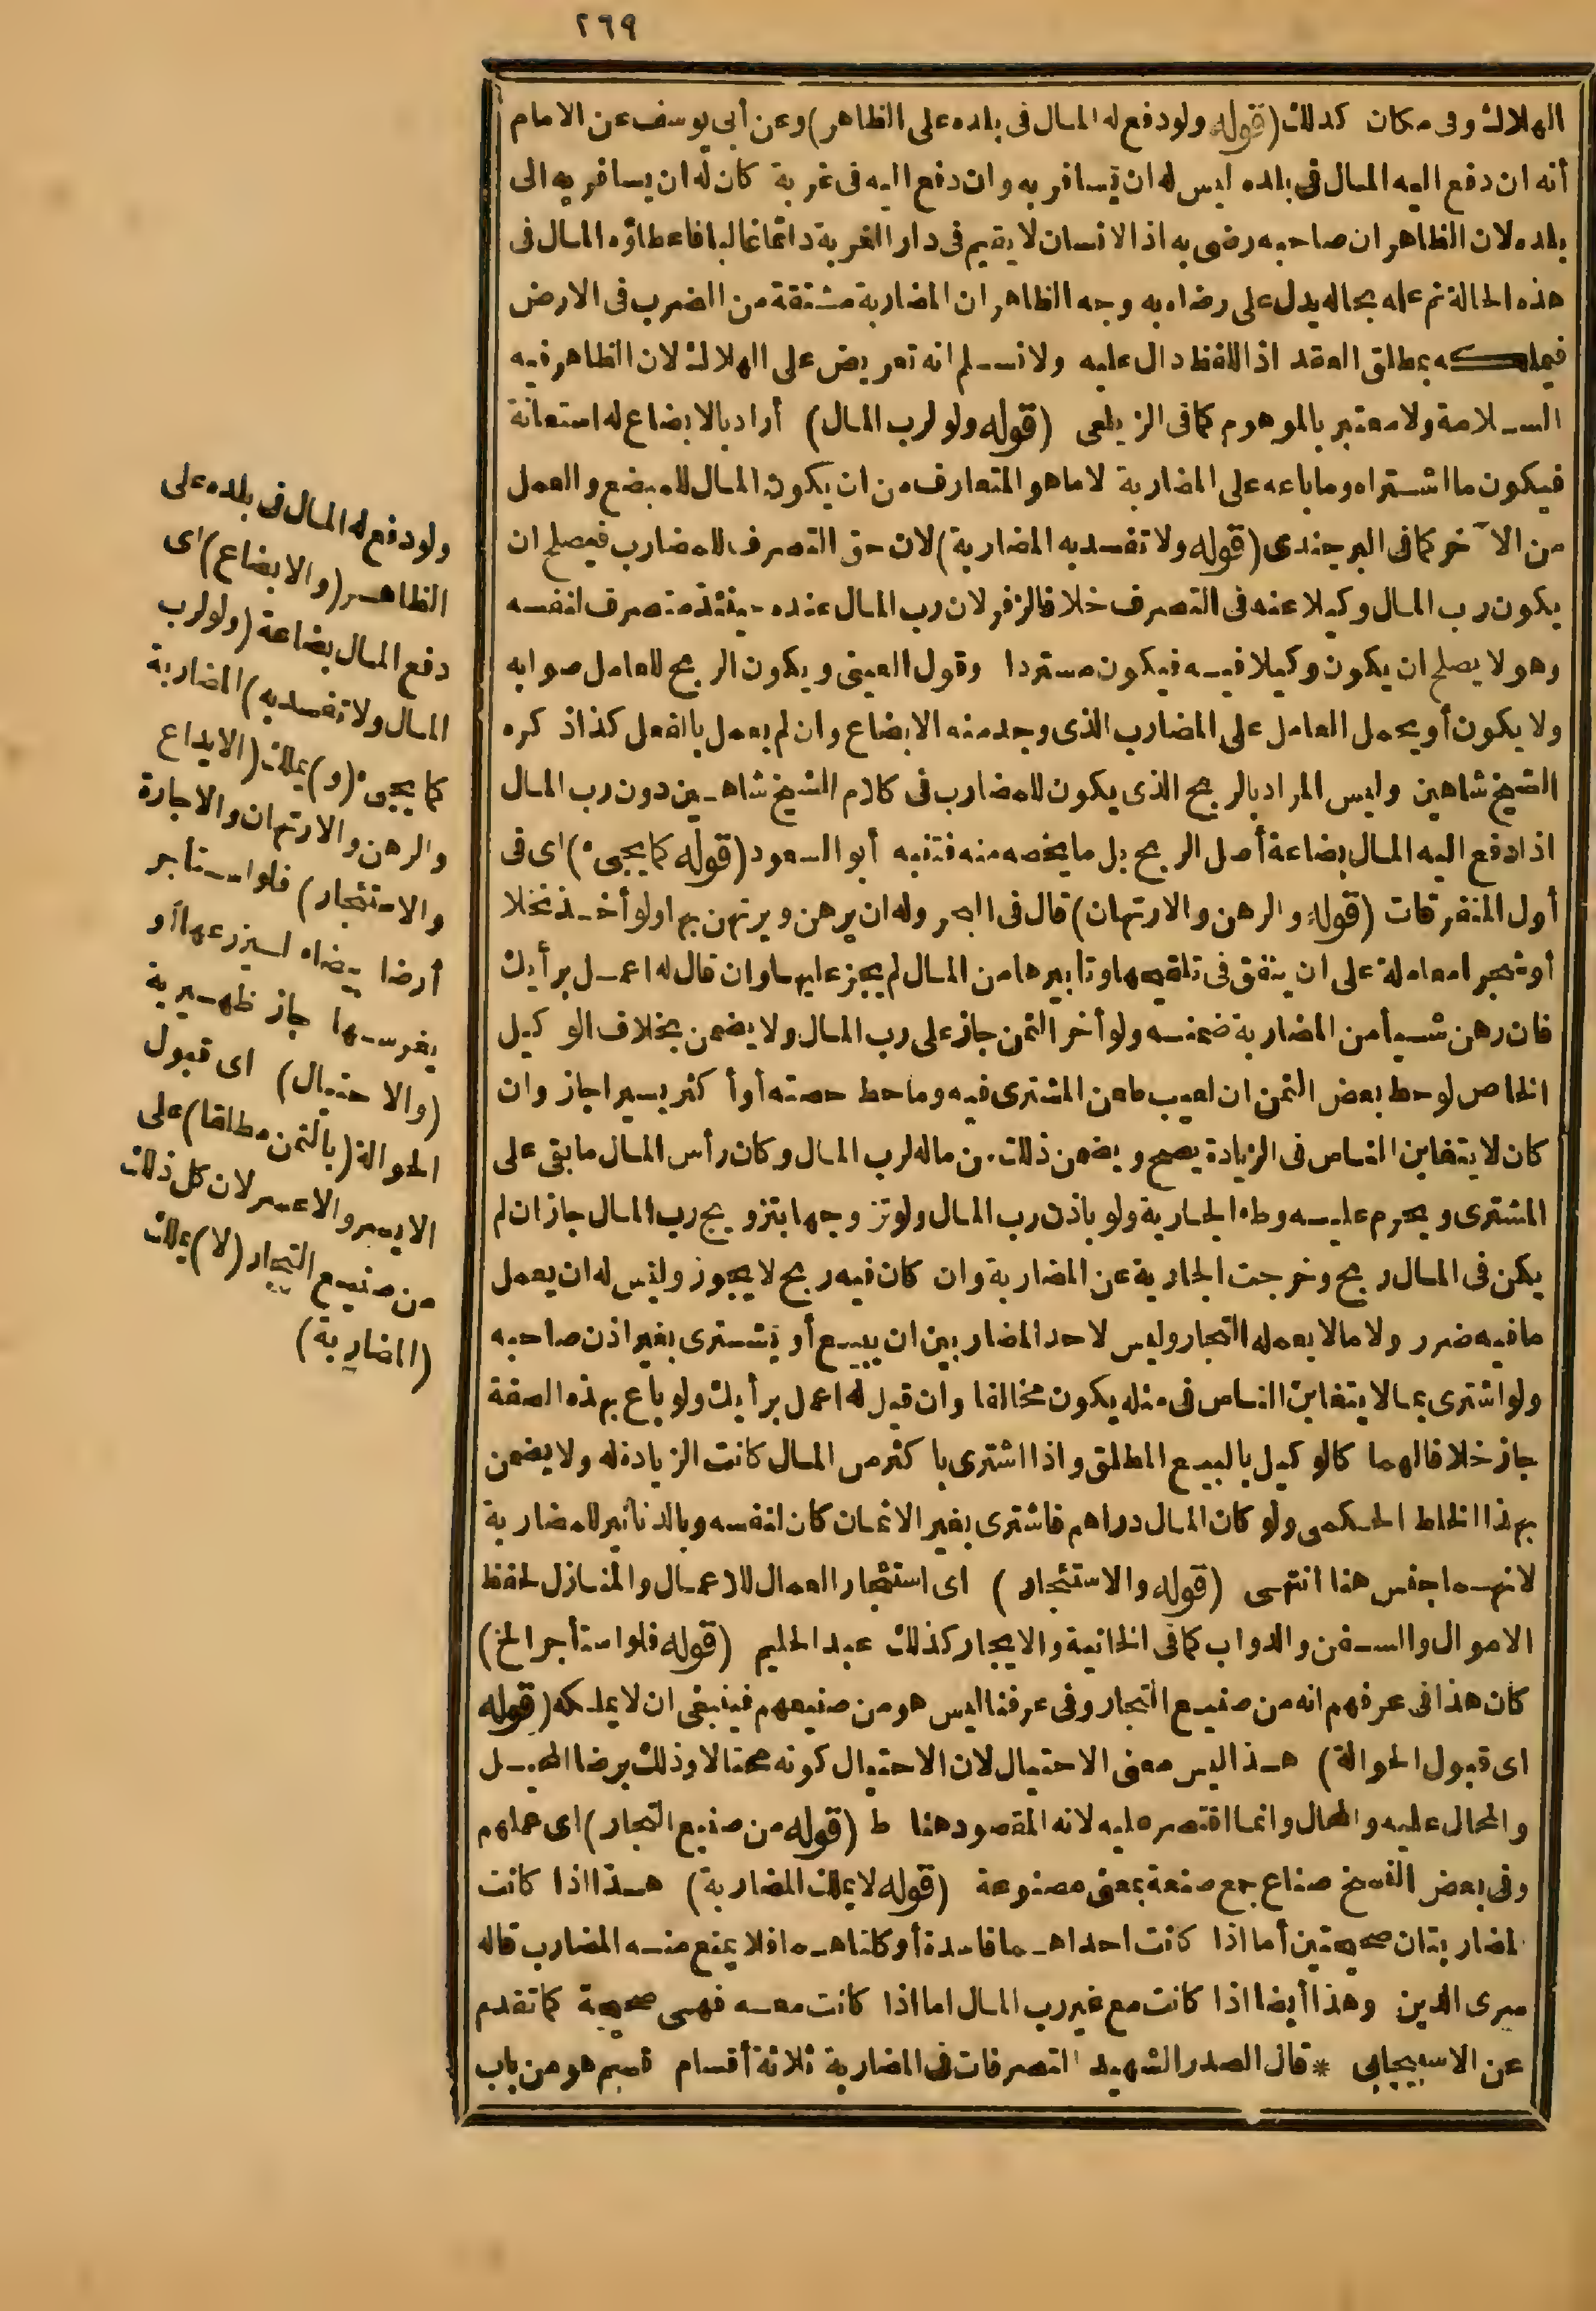 ٢٦٩
الهلاك وفى مكان كذلك (قوله ولودفع له المال فى بلده على الظاهر) وعن أبى يوسف عن الامام
أنه ان دفع اليه المال فى بلده ليس له ان يسافر به وان دفع اليه فى غربة كان له ان يسافر به الى
بلده لان الظاهر ان صاحبه رضى به اذ الانسان لا يقيم فى دار الغربة دائما غالبا فاعطاؤه المال فى
هذه الحالة مع علمه بحاله يدل على رضاه به وجه الظاهر ان المضاربة مشتقة من الضرب فى الارض
فيملكه بمطلق العقد اذ اللفظ دال عليه ولا نسلم انه تعريض على الهلاك لان الظاهر فيه
السلامة ولا معتبر بالموهوم كما فى الزيلعى (قوله ولو لرب المال) أراد بالابضاع له استعانة
فيكون ما اشتراه وما باعه على المضاربة لا ما هو المتعارف من ان يكون المال للمبضع والعمل
من الآخر كما فى البرجندى (قوله ولا تفسد به المضاربة) لان حق التصرف للمضارب فيصلح ان
يكون رب المال وكيلا عنه فى التصرف خلافا لزفر لان رب المال عنده حينئذ متصرف لنفسه
وهو لا يصلح ان يكون وكيلا فيه فيكون مستردا وقول العينى ويكون الربح للعامل صوابه
ولا يكون أو يحمل العامل على المضارب الذى وجد منه الابضاع وان لم يعمل بالفعل كذا ذكره
الشيخ شاهين وليس المراد بالربح الذى يكون للمضارب فى كلام الشيخ شاهين دون رب المال
اذا دفع اليه المال بضاعة أصل الربح بل ما يخصه منه فتنبه أبو السعود (قوله كما يجىء) اى فى
أول المتفرقات (قوله والرهن والارتهان) قال فى البحر وله ان يرهن ويرتهن بها ولو أخذ نخلا
أو شجرا معاملة على ان ينفق فى تلقيحها وتابيرها من المال لم يجز عليهما وان قال له اعمل برأيك
فان رهن شيأ من المضاربة ضمنه ولو أخر الثمن جاز على رب المال ولا يضمن بخلاف الوكيل
الخاص لو حط بعض الثمن ان لعيب طعن المشترى فيه وما حط حصته أو أكثر يسيرا جاز وان
كان لا يتغابن الناس فى الزيادة يصح ويضمن ذلك من ماله لرب المال وكان رأس المال ما بقى على
المشترى ويحرم عليه وطء الجارية ولو باذن رب المال ولو تزوجها بتزويج رب المال جاز ان لم
يكن فى المال ربح وخرجت الجارية عن المضاربة وان كان فيه ربح لا يجوز وليس له ان يعمل
ما فيه ضرر ولا ما لا يعمله التجار وليس لاحد المضاربين ان يبيع أو يشترى بغير اذن صاحبه
ولو اشترى بما لا يتغابن الناس فى مثله يكون مخالفا وان قيل له اعمل برأيك ولو باع بهذه الصفة
جاز خلافا لهما كالوكيل بالبيع المطلق واذا اشترى باكثر من المال كانت الزيادة له ولا يضمن
بهذا الخلط الحكمى ولو كان المال دراهم فاشترى بغير الاثمان كان لنفسه وبالدنانير للمضاربة
لانهما جنس هنا انتهى (قوله والاستئجار) اى استئجار العمال للاعمال والمنازل لحفظ
الاموال والسفن والدواب كما فى الخانية والايجار كذلك عبد الحليم (قوله فلو استأجر الخ)
كان هذا فى عرفهم انه من صنيع التجار وفى عرفنا ليس هو من صنيعهم فينبغى ان لا يملكه (قوله
اى قبول الحوالة) هذا ليس معنى الاحتيال لان الاحتيال كونه محتالا وذلك برضا المحيل
والمحال عليه والمحال وانما اقتصر عليه لانه المقصود هنا ط (قوله من صنيع التجار) اى عملهم
وفى بعض النسخ صناع جمع صنعة بمعنى مصنوعة (قوله لا يملك المضاربة) هذا اذا كانت
المضاربتان صحيحتين أما اذا كانت احداهما فاسدة أو كلتاهما فلا يمنع منه المضارب قاله
سرى الدين وهذا أيضا اذا كانت مع غير رب المال اما اذا كانت معه فهى صحيحة كما تقدم
عن الاسبيجابى * قال الصدر الشهيد التصرفات فى المضاربة ثلاثة أقسام قسم هو من باب
ولو دفع له المال فى بلده على
الظاهر (والابضاع) اى
دفع المال بضاعة (ولو لرب
المال ولا تفسد به) المضاربة
كما يجىء (و) يملك (الايداع
والرهن والارتهان والاجارة
والاستئجار) فلو استأجر
أرضا بيضاء ليزرعها أو
يغرسها جاز ظهيرية
(والاحتيال) اى قبول
الحوالة (بالثمن مطلقا) على
الايسر والاعسر لان كل ذلك
من صنيع التجار (لا) يملك
(المضاربة)